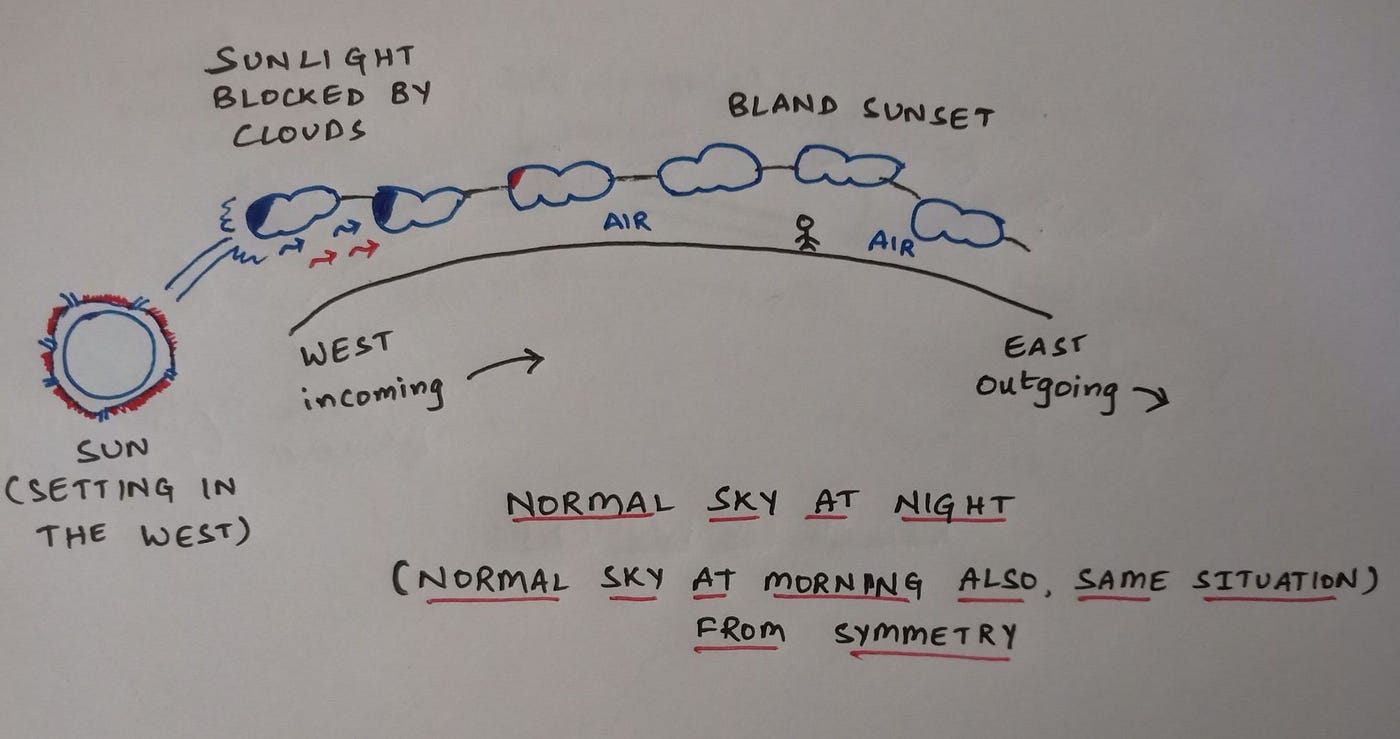 SUNLIGHT
BLOCKED BY
CLOUDS
BLAND SUNSET
AIR
AIR
WEST
incoming
EAST
outgoing
SUN
(SETTING IN
THE WEST)
NORMAL SKY AT NIGHT
(NORMAL SKY AT MORNING ALSO, SAME SITUATION)
FROM SYMMETRY